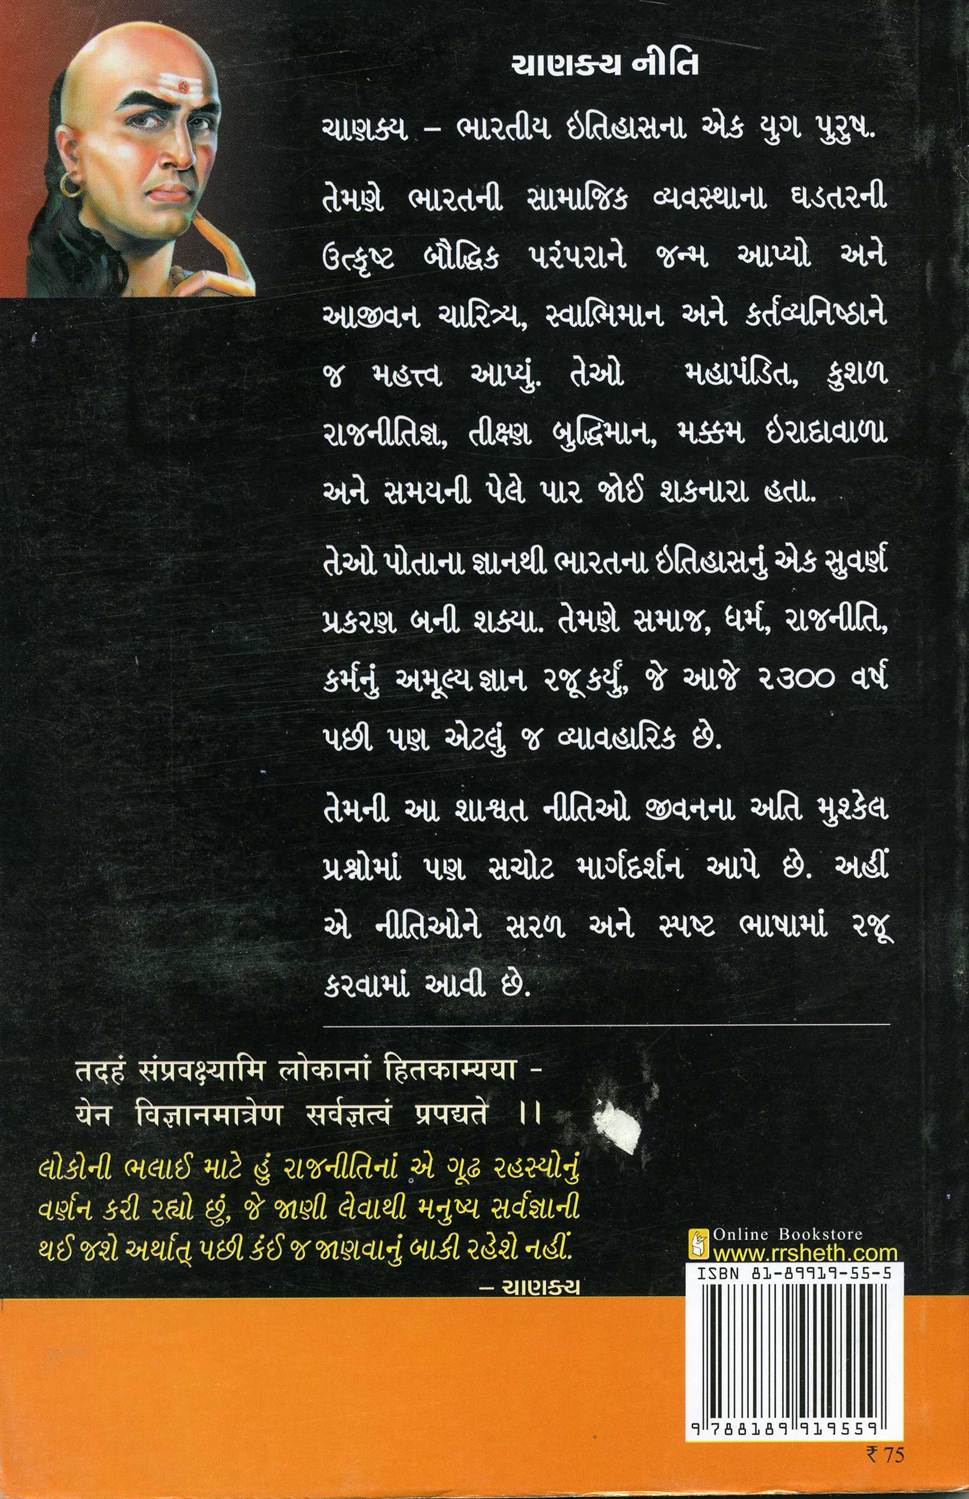 ચાણક્ય નીતિ
ચાણક્ય – ભારતીય ઇતિહાસના એક યુગ પુરુષ.
તેમણે ભારતની સામાજિક વ્યવસ્થાના ઘડતરની
ઉત્કૃષ્ટ બૌદ્ધિક પરંપરાને જન્મ આપ્યો અને
આજીવન ચારિત્ર્ય, સ્વાભિમાન અને કર્તવ્યનિષ્ઠાને
જ મહત્ત્વ આપ્યું. તેઓ મહાપંડિત, કુશળ
રાજનીતિજ્ઞ, તીક્ષ્ણ બુદ્ધિમાન, મક્કમ ઇરાદાવાળા
અને સમયની પેલે પાર જોઈ શકનારા હતા.
તેઓ પોતાના જ્ઞાનથી ભારતના ઇતિહાસનું એક સુવર્ણ
પ્રકરણ બની શક્યા. તેમણે સમાજ, ધર્મ, રાજનીતિ,
કર્મનું અમૂલ્ય જ્ઞાન રજૂ કર્યું, જે આજે ૨૩૦૦ વર્ષ
પછી પણ એટલું જ વ્યાવહારિક છે.
તેમની આ શાશ્વત નીતિઓ જીવનના અતિ મુશ્કેલ
પ્રશ્નોમાં પણ સચોટ માર્ગદર્શન આપે છે. અહીં
એ નીતિઓને સરળ અને સ્પષ્ટ ભાષામાં રજૂ
કરવામાં આવી છે.
તદહં સંપ્રવક્ષ્યામિ લોકાનાં હિતકામ્યયા -
યેન વિજ્ઞાનમાત્રેણ સર્વજ્ઞત્વં પ્રપદ્યતે ।।
લોકોની ભલાઈ માટે હું રાજનીતિનાં એ ગૂઢ રહસ્યોનું
વર્ણન કરી રહ્યો છું, જે જાણી લેવાથી મનુષ્ય સર્વજ્ઞાની
થઈ જશે અર્થાત્ પછી કંઈ જ જાણવાનું બાકી રહેશે નહીં.
– ચાણક્ય
Online Bookstore
www.rrsheth.com
ISBN 81-89919-55-5
9 788189 919559
₹ 75